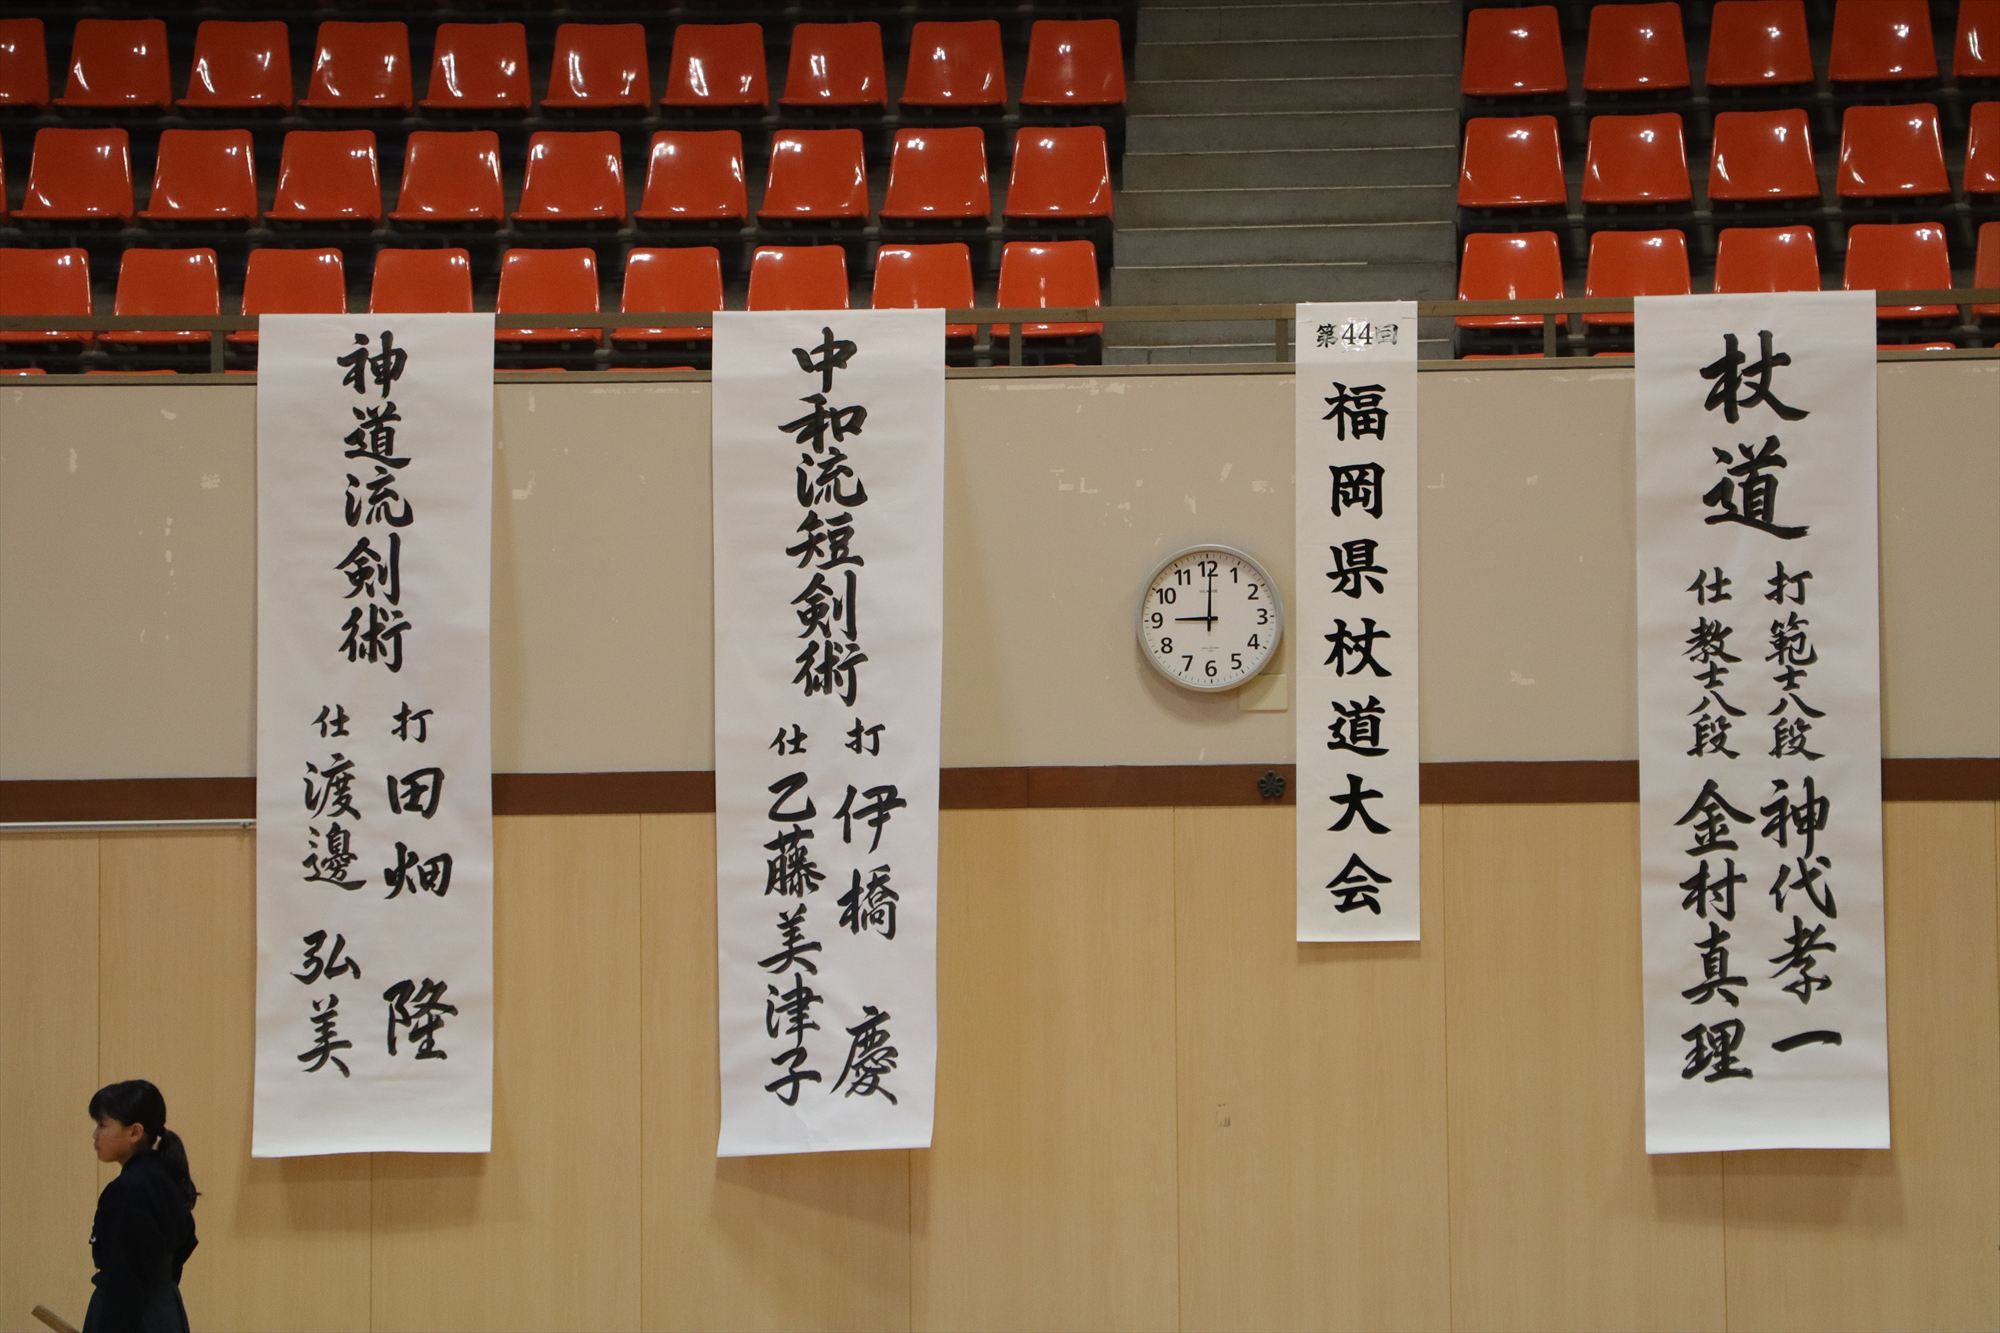 杖道
打 範士八段 神代孝一
仕 教士八段 金村真理
第44回
福岡県杖道大会
12
1
2
3
4
5
6
7
8
9
10
11
中和流短剣術
打 伊橋 慶
仕 乙藤美津子
神道流剣術
打 田畑 隆
仕 渡邊 弘美